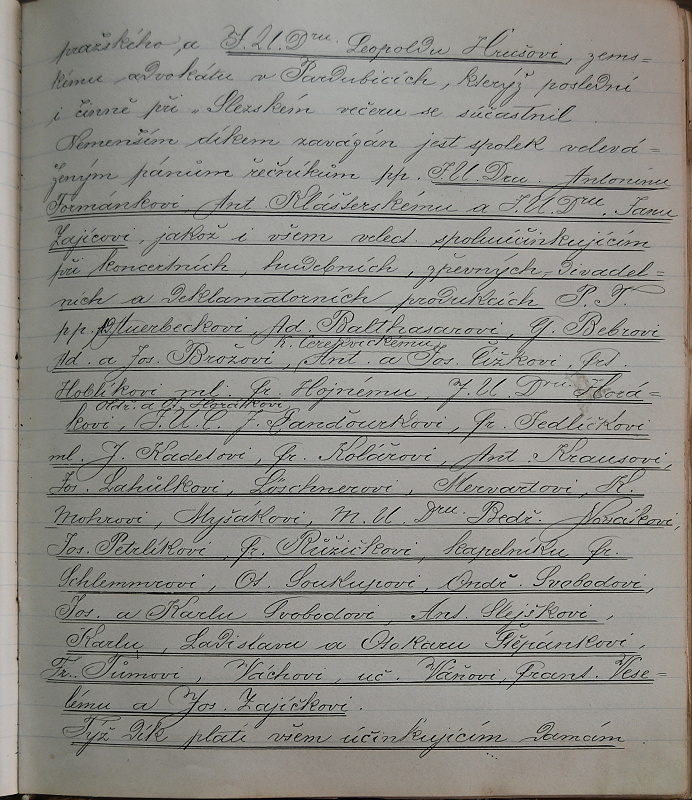 pražského, a J. U. Dru. Leopoldu Hrušovi, zems-
kému advokátu v Pardubicích, kterýž poslední
i činně při „Slezském večeru se súčastnil.
Nemenším díkem zavázán jest spolek velevá=
ženým pánům řečníkům pp. J. U. Dru. Antonínu
Formánkovi, Ant. Klášterskému a J. U. Dru. Janu
Zajícovi, jakož i všem velect. spoluúčinkujícím
při koncertních, hudebních, zpěvných, divadel-
ních a deklamatorních produkcích P. T.
pp. Auerbeckovi, Ad. Balthasarovi, J. Bebrovi
K. Čerepvickému
Ad. a Jos. Brožovi, Ant. a Jos. Čížkovi, Frt.
Hoblíkovi ml. Fr. Hojnému, J. U. Dru. Horá=
Oldř. a Horákovi
kovi, J. U. C. J. Janďourkovi, Fr. Jedličkovi
ml. J. Kadeřovi, Fr. Kolářovi, Ant. Krausovi,
Jos. Lahůlkovi, Löschnerovi, Mervartovi, K.
Mohrovi, Myšákovi, M. U. Dru. Bedř. Novákovi,
Jos. Petrlíkovi, Fr. Růžičkovi, kapelníku Fr.
Schlemmrovi, Ot. Soukupovi, Ondř. Svobodovi,
Jos. a Karlu Svobodovi, Ant. Slejškovi,
Karlu, Ladislavu a Otokaru Štěpánkovi,
Fr. Tůmovi, Váchovi, uč. Váňovi, Frant. Vese=
lému a Jos. Zajíčkovi.
Týž dík platí všem účinkujícím dámám